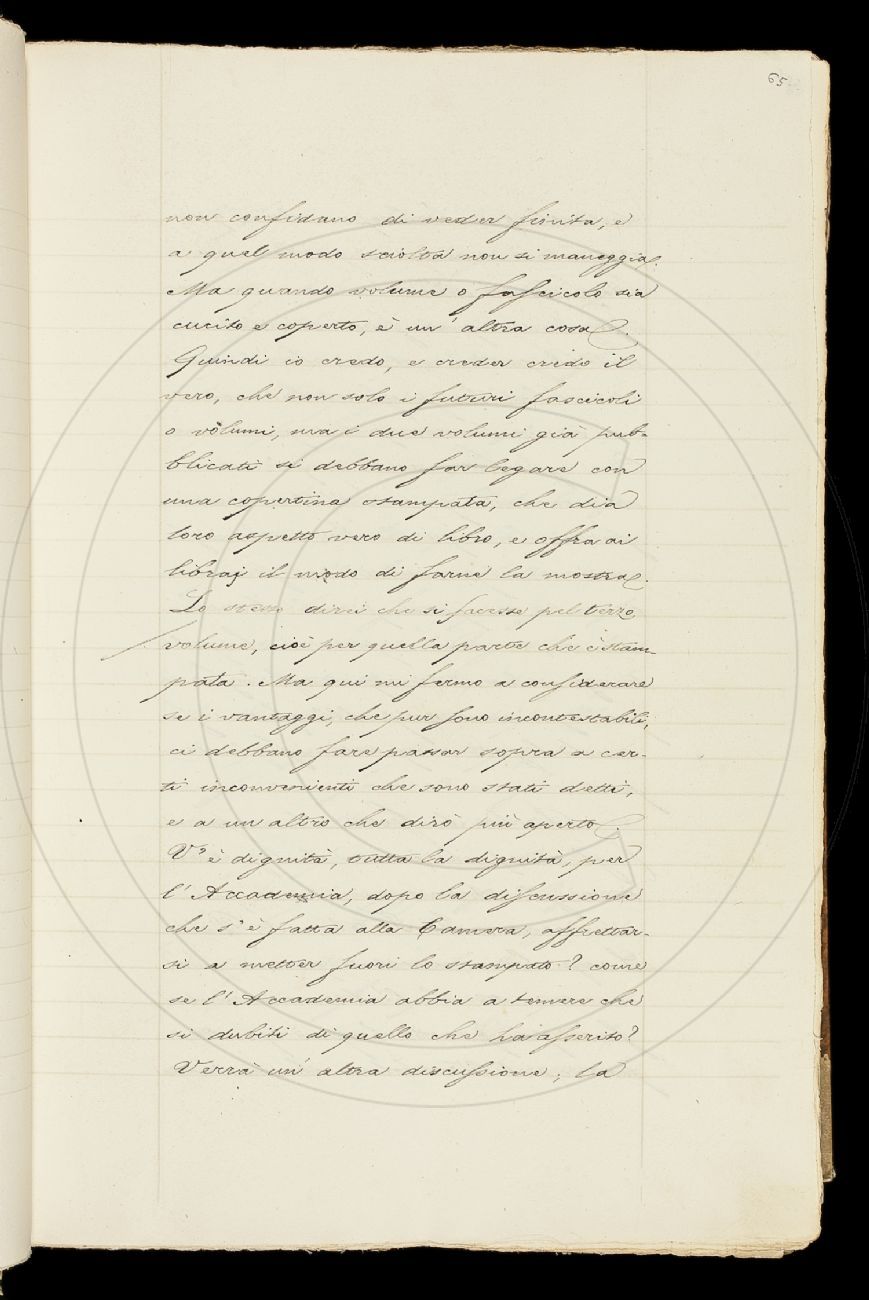 65
non confidano di veder finita, e
a quel modo sciolta non si maneggia.
Ma quando volume o fascicolo sia
cucito e coperto, è un'altra cosa.
Quindi io credo, e creder credo il
vero, che non solo i futuri fascicoli
o volumi, ma i due volumi già pub-
blicati si debbano far legare con
una copertina stampata, che dia
loro aspetto vero di libro, e offra ai
librai il modo di farne la mostra.
Lo stesso direi che si facesse pel terzo
volume, cioè per quella parte che è stam-
pata. Ma qui mi fermo a considerare
se i vantaggi, che pur sono incontestabili,
ci debbano fare passar sopra a cer-
ti inconvenienti che sono stati detti,
e a un altro che dirò più aperto.
V'è dignità, tutta la dignità, per
l'Accademia, dopo la discussione
che s'è fatta alla Camera, affrettar-
si a metter fuori lo stampato? come
se l'Accademia abbia a temere che
si dubiti di quello che ha asserito?
Verrà un'altra discussione; la